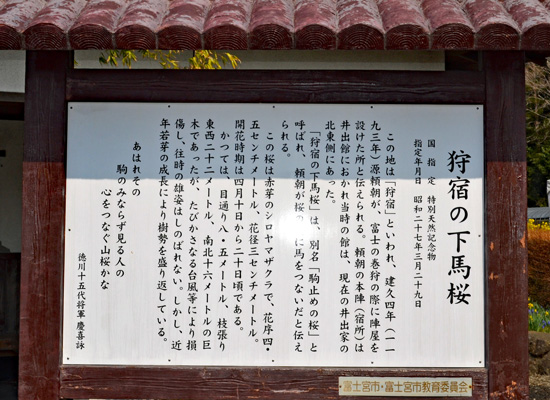 狩宿の下馬桜
国指定 特別天然記念物
指定年月日 昭和二十七年三月二十九日
この地は「狩宿」といわれ、建久四年(一一
九三年)源頼朝が、富士の巻狩の際に陣屋を
設けた所と伝えられる。頼朝の本陣(宿所)は
井出館におかれ当時の館は、現在の井出家の
北東側にあった。
「狩宿の下馬桜」は、別名「駒止めの桜」と
呼ばれ、頼朝が桜の に馬をつないだと伝え
られる。
この桜は赤芽のシロヤマザクラで、花序四・
五センチメートル、花径三センチメートル。
開花時期は四月十日から二十日頃である。
かつては、目通り八・五メートル、枝張り
東西二十二メートル、南北十六メートルの巨
木であったが、たびかさなる台風等により損
傷し、往時の雄姿はしのばれない。しかし、近
年若芽の成長により樹勢を盛り返している。
あはれその
駒のみならず見る人の
心をつなぐ山桜かな
徳川十五代将軍 慶喜詠
富士宮市・富士宮市教育委員会